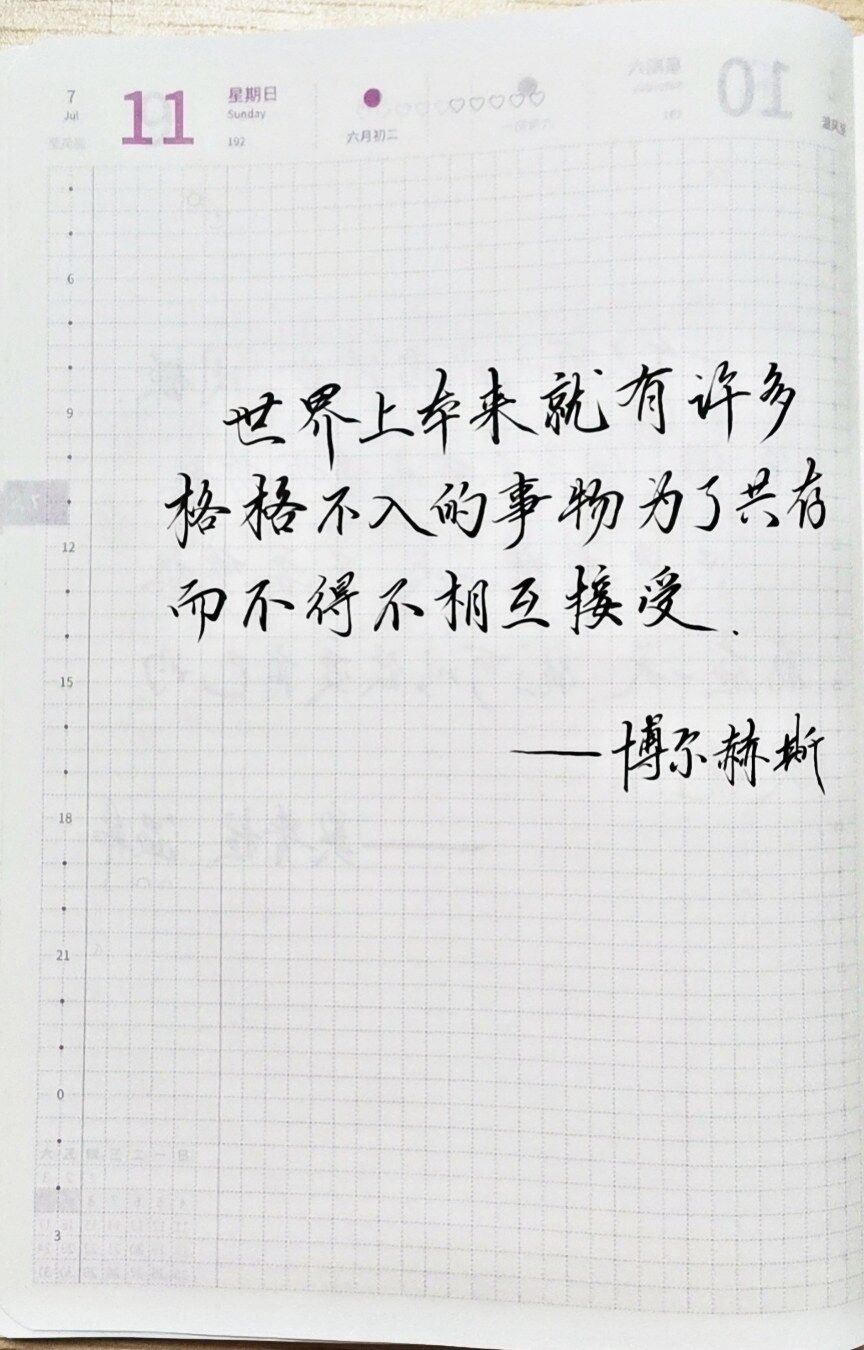 7 11 星期日
Jul Sunday
192 六月初二
6
世界上本来就有许多
9
格格不入的事物为了共存
12
而不得不相互接受.
15
——博尔赫斯
18
21
0
3